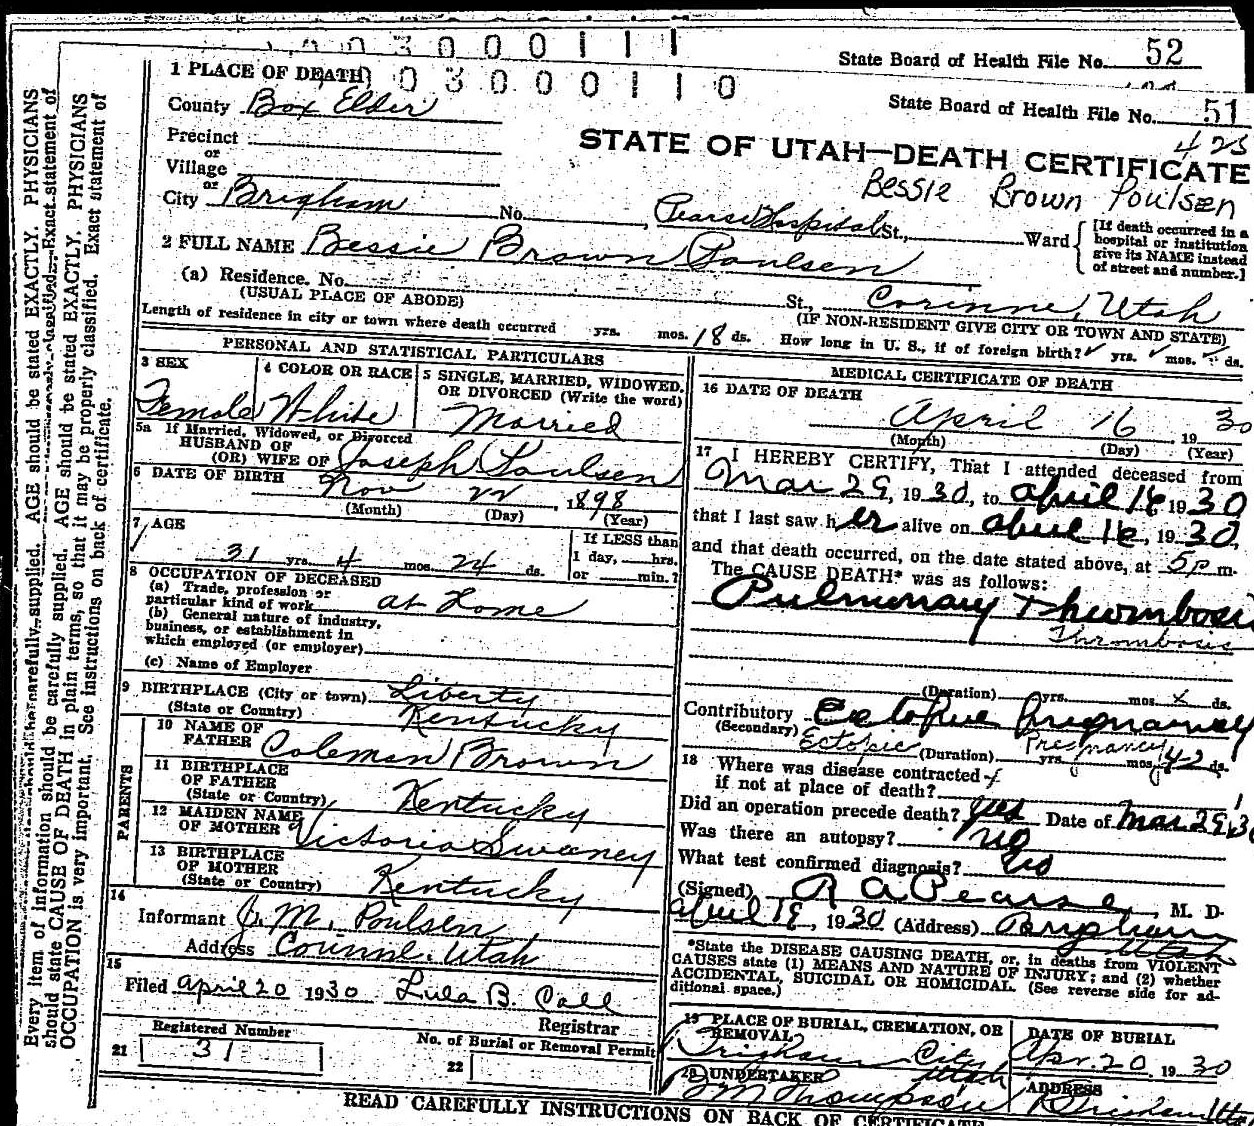 0 0 3 0 0 0 1 1 1
State Board of Health File No. 52
1 PLACE OF DEATH
0 3 0 0 0 1 1 0
County Box Elder
State Board of Health File No. 51
423
Precinct
or
Village
or
STATE OF UTAH—DEATH CERTIFICATE
Bessie Brown Poulsen
City Brigham No. Pearse Hospital St., Ward
[If death occurred in a
hospital or institution
give its NAME instead
of street and number.]
2 FULL NAME Bessie Brown Poulsen
(a) Residence. No. St., Corinne, Utah
(USUAL PLACE OF ABODE)
(IF NON-RESIDENT GIVE CITY OR TOWN AND STATE)
Length of residence in city or town where death occurred yrs. mos. 18 ds. How long in U. S., if of foreign birth? yrs. mos. ds.
PERSONAL AND STATISTICAL PARTICULARS
3 SEX
Female
4 COLOR OR RACE
White
5 SINGLE, MARRIED, WIDOWED,
OR DIVORCED (Write the word)
Married
5a If Married, Widowed, or Divorced
HUSBAND OF
(OR) WIFE OF Joseph Poulsen
6 DATE OF BIRTH Nov 22, 1898
(Month) (Day) (Year)
7 AGE
If LESS than
1 day, hrs.
or min.?
31 yrs. 4 mos. 24 ds.
8 OCCUPATION OF DECEASED
(a) Trade, profession or
particular kind of work at Home
(b) General nature of industry,
business, or establishment in
which employed (or employer)
(c) Name of Employer
9 BIRTHPLACE (City or town) Liberty
(State or Country) Kentucky
PARENTS
10 NAME OF
FATHER Coleman Brown
11 BIRTHPLACE
OF FATHER
(State or Country) Kentucky
12 MAIDEN NAME
OF MOTHER Victoria Sweeney
13 BIRTHPLACE
OF MOTHER
(State or Country) Kentucky
14
Informant J. M. Poulsen
Address Corinne, Utah
15
Filed april 20 1930 Lula B. Call
Registrar
Registered Number
21 31
No. of Burial or Removal Permit
22
MEDICAL CERTIFICATE OF DEATH
16 DATE OF DEATH
April 16, 1930
(Month) (Day) (Year)
17 I HEREBY CERTIFY, That I attended deceased from
Mar 29, 1930, to april 16 1930
that I last saw her alive on april 16, 1930,
and that death occurred, on the date stated above, at 5 p m.
The CAUSE DEATH* was as follows:
Pulmonary Thrombosis
Thrombosis
(Duration) yrs. mos. x ds.
Contributory Ectopic Pregnancy
(Secondary) Ectopic Pregnancy
(Duration) yrs. mos. ds.
18 Where was disease contracted
if not at place of death?
Did an operation precede death? yes Date of Mar 29, 30
Was there an autopsy? no
What test confirmed diagnosis? no
(Signed) R A Pearse, M. D.
april 18, 1930 (Address) Brigham
Utah
*State the DISEASE CAUSING DEATH, or, in deaths from VIOLENT
CAUSES state (1) MEANS AND NATURE OF INJURY; and (2) whether
ACCIDENTAL, SUICIDAL OR HOMICIDAL. (See reverse side for ad-
ditional space.)
19 PLACE OF BURIAL, CREMATION, OR
REMOVAL
Brigham City
Utah
DATE OF BURIAL
Apr. 20, 1930
20 UNDERTAKER
Thompson
ADDRESS
Brigham Utah
READ CAREFULLY INSTRUCTIONS ON BACK OF CERTIFICATE
Every item of information should be carefully supplied. AGE should be stated EXACTLY. PHYSICIANS
should state CAUSE OF DEATH in plain terms, so that it may be properly classified. Exact statement of
OCCUPATION is very important. See instructions on back of certificate.